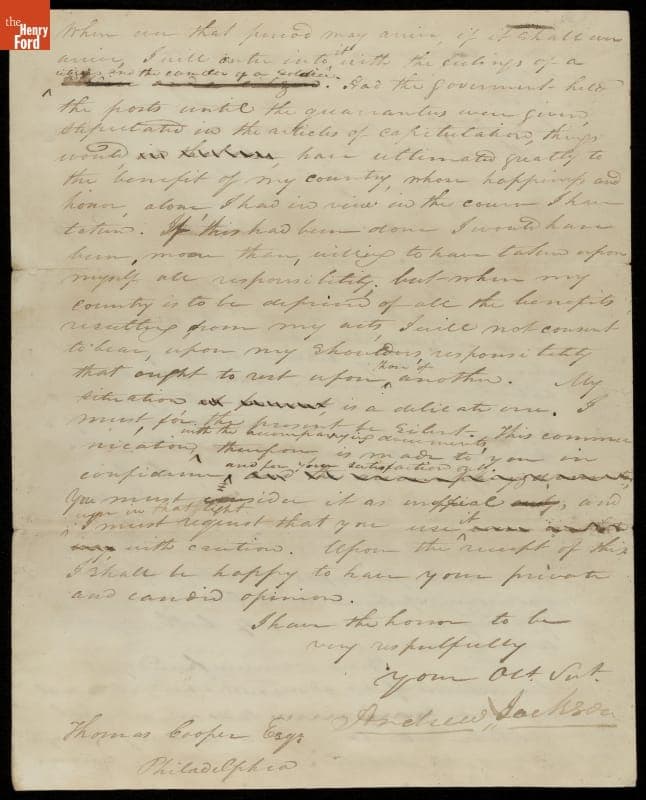 the
Henry
Ford
When ever that period may arrive, if it shall ever
arrive, I will enter into it with the feelings of a
citizen and the candor of a soldier
. Had the goverment held
the posts until the guarantees were given,
stipulated in the articles of capitulation, things
would have ultimated greatly to
the benefit of my country, whose happiness and
honor, alone I had in view in the course I have
taken. If this had been done I would have
been, more than, willing to have taken upon
myself all responsibility, but when my
country is to be deprived of all the benefits
resulting from my acts, I will not consent
to bear, upon my shoulders responsibility
that ought to rest upon those of another. My
situation is a delicate one. I
must for the present be silent. This commu
with the accompanying documents
nication, therefore, is made to you in
and for your satisfaction only.
confidence
You must consider it as unofficial, and
in that light
I must request that you use it
with caution. Upon the receipt of this
I shall be happy to have your private
and candid opinion.
I have the honor to be
very respectfully
your Obt. Svt.
Andrew Jackson
Thomas Cooper Esqr
Philadelphia